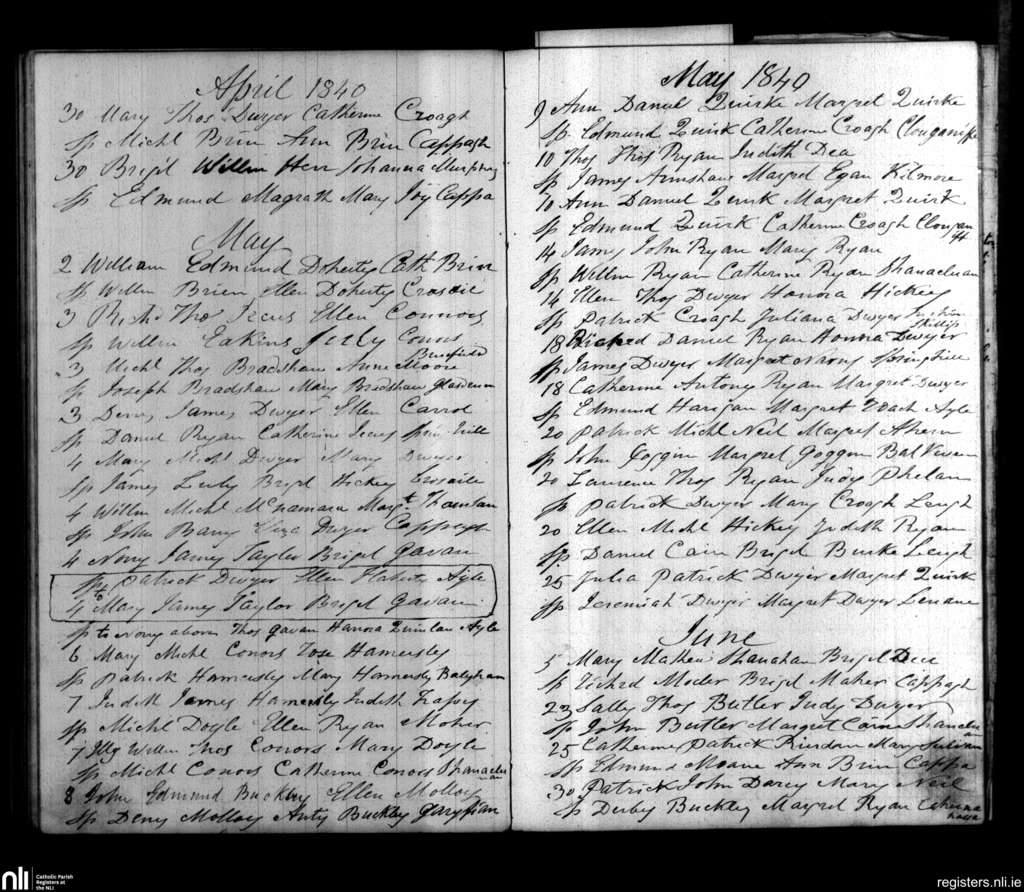 April 1840
30 Mary Thos Dwyer Catherine Croagh
Sp Michl Brin Ann Brin Cappagh
30 Brigil Willm Herr Johanna Murphy
Sp Edmund Magrath Mary Joy Cappa
May
2 William Edmund Doherty Cath Brin
Sp Willm Brien Ellen Doherty
3 Thos Ellen Connors
Sp Willm Eakins Conors
3 Michl Thos Bradshaw Anne Moore
Sp Joseph Bradshaw Mary Bradshaw
3 Deny James Dwyer Ellen Carrol
Sp Daniel Ryan Catherine
4 Mary Michl Dwyer Mary Dwyer
Sp James Brigl Hickey
4 Willm Michl McNamara Margt
Sp John Barry Dwyer Cappagh
4 Nony James Taylor Brigel Gavan
Sp Patrick Dwyer Ellen Ayle
4 Mary James Taylor Brigel Gavan
Sp to Nony above Thos Gavan Hanora Quinlan Ayle
6 Mary Michl Conors Hamersley
Sp Patrick Hamersley Mary Hamersly
7 Judith James Hamersly Judith
Sp Michl Doyle Ellen Ryan Moher
7 Willm Thos Conors Mary Doyle
Sp Michl Conors Catherine Conors Shanacluan
8 John Edmund Buckley Ellen Molloy
Sp Deny Molloy Anty Buckley
May 1840
9 Ann Daniel Quirke Margret Quirke
Sp Edmund Quirk Catherine Croagh
10 Thos Thos Ryan Judith Dea
Sp James Armshaw Margret Egan Kilmore
10 Ann Daniel Quirk Margret Quirk
Sp Edmund Quirk Catherine Croagh
14 James John Ryan Mary Ryan
Sp Willm Ryan Catherine Ryan Shanacluan
14 Ellen Thos Dwyer Honora Hickey
Sp Patrick Croagh Juliana Dwyer
18 Richard Daniel Ryan Honora Dwyer
Sp James Dwyer Margret Springhill
18 Catherine Antony Ryan Margret Dwyer
Sp Edmund Harigan Margret Roach Ayle
20 Patrick Michl Neil Margret Ahern
Sp John Goggin Margret Goggin
20 Laurence Thos Ryan Judy Phelan
Sp Patrick Dwyer Mary Croagh Leugh
20 Ellen Michl Hickey Judith Ryan
Sp Daniel Cain Brigel Burke Leugh
25 Julia Patrick Dwyer Margret Quirk
Sp Jeremiah Dwyer Margret Dwyer Lenane
June
5 Mary Mathew Shanahan Brigel Dee
Sp Brigel Maher Cappagh
23 Sally Thos Butler Judy Dwyer
Sp John Butler Margret
25 Catherine Patrick Riordan Mary
Sp Edmund Moane Ann Brin Cappa
30 Patrick John Darcy Mary Neil
Sp Derby Buckley Margret Ryan
nli Catholic Parish Registers at the NLI
registers.nli.ie